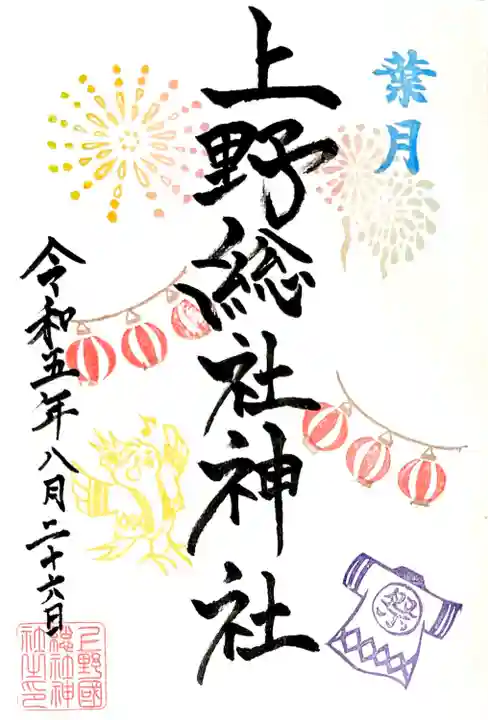 葉月
上野総社神社
令和五年八月二十六日
祭
上野國
総社神
社之印